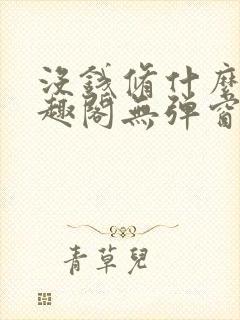 沒錢脩什麼
趣閣無彈窗
青草兒